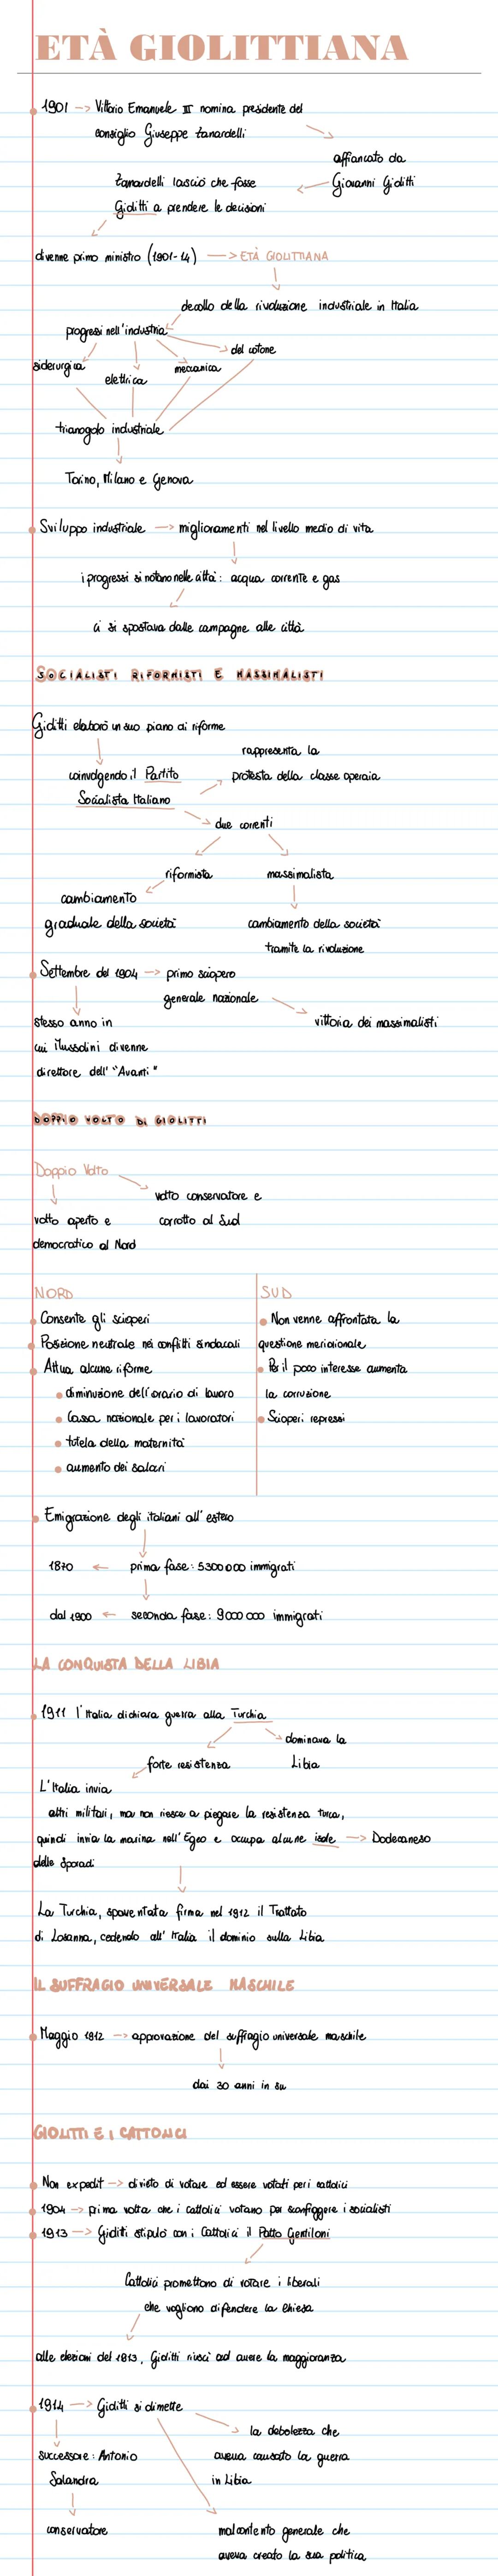 ETÀ GIOLITTIANA
1901 -> Vittorio Emanuele III nomina presidente del
consiglio Giuseppe Zanardelli
affiancato da
Giovanni Giolitti
Zanardelli lasciò che fosse
Giolitti a prendere le decisioni
divenne primo ministro (1901-14) -> ETÀ GIOLITTIANA
decollo della rivoluzione industriale in Italia
progressi nell'industria
del cotone
siderurgica
meccanica
elettrica
triangolo industriale
Torino, Milano e Genova
Sviluppo industriale -> miglioramenti nel livello medio di vita
i progressi si notano nelle città: acqua corrente e gas
ci si spostava dalle campagne alle città
SOCIALISTI RIFORMISTI E MASSIMALISTI
Giolitti elaborò un suo piano di riforme
rappresenta la
coinvolgendo il Partito
protesta della classe operaia
Socialista Italiano
due correnti
riformista
massimalista
cambiamento
graduale della società
cambiamento della società
tramite la rivoluzione
Settembre del 1904 -> primo sciopero
generale nazionale
stesso anno in
vittoria dei massimalisti
cui Mussolini divenne
direttore dell' "Avanti"
DOPPIO VOLTO DI GIOLITTI
Doppio Volto
volto conservatore e
volto aperto e
corrotto al Sud
democratico al Nord
NORD
SUD
Consente gli scioperi
Non venne affrontata la
Posizione neutrale nei conflitti sindacali
questione meridionale
Attua alcune riforme
Per il poco interesse aumenta
diminuzione dell'orario di lavoro
la corruzione
Cassa nazionale per i lavoratori
Scioperi repressi
tutela della maternità
aumento dei salari
Emigrazione degli italiani all'estero
1870 <- prima fase: 5300000 immigrati
dal 1900 <- seconda fase: 9000000 immigrati
LA CONQUISTA DELLA LIBIA
1911 l'Italia dichiara guerra alla Turchia
dominava la
forte resistenza
Libia
L'Italia invia
altri militari, ma non riesce a piegare la resistenza turca,
quindi invia la marina nell'Egeo e occupa alcune isole -> Dodecaneso
delle Sporadi
La Turchia, spaventata firma nel 1912 il Trattato
di Losanna, cedendo all'Italia il dominio sulla Libia
IL SUFFRAGIO UNIVERSALE MASCHILE
Maggio 1912 -> approvazione del suffragio universale maschile
dai 30 anni in su
GIOLITTI E I CATTOLICI
Non expedit -> divieto di votare ed essere votati per i cattolici
1904 -> prima volta che i cattolici votano per sconfiggere i socialisti
1913 -> Giolitti stipulò con i Cattolici il Patto Gentiloni
Cattolici promettono di votare i liberali
che vogliono difendere la Chiesa
alle elezioni del 1813, Giolitti riuscì ad avere la maggioranza
1914 -> Giolitti si dimette
la debolezza che
successore: Antonio
aveva causato la guerra
Salandra
in Libia
conservatore
malcontento generale che
aveva creato la sua politica